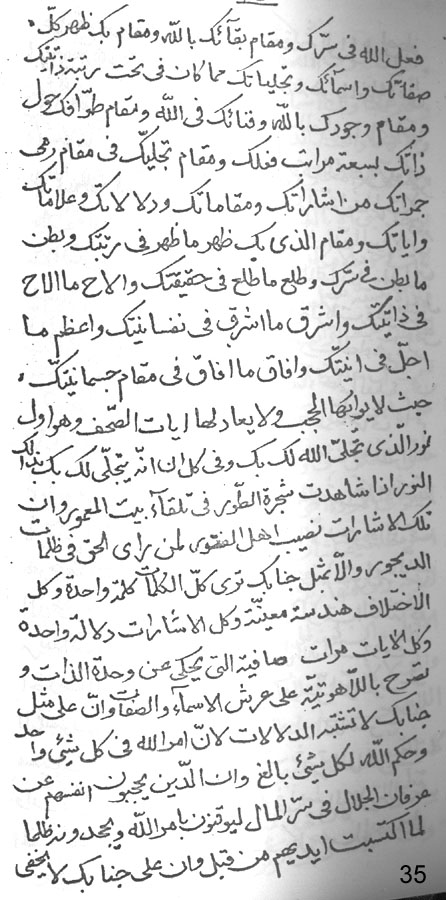 فعل الله فی سرّک و مقام بقآئک باللّه و مقام بک ظهر کلّ
صفاتک و اسمآئک و تجلیاتک مما کان فی تحت رتبة ذاتیتک
و مقام وجودک باللّه و فنائک فی اللّه و مقام طوّافک حول
ذاتک بسبعة مرات فعلک و مقام تجلیک فی مقام رمی
جمراتک من اشاراتک و مقاماتک و دلالاتک و علاماتک
و ایاتک و مقام الذی بک ظهر ما ظهر فی رتبتک و بطن
ما بطن فی سرّک و طلع ما طلع فی حقیقتک و الاح ما الاح
فی ذاتیّتک و اشرق ما اشرق فی نفسانیتک و اعظم ما
اجلّ فی انیّتک و افاق ما افاق فی مقام جسمانیتک
حیث لا یواریها الحجب و لا یعادلها ایات الصّحف و هو اول
نور الّذی تجلیّ اللّه لک بک و فی کل ان انّه یتجلّی لک بک بذلک
النور اذا شاهدت شجرة الطّور فی تلقآء بیت المعمور و ان
تلک الاشارات نصیب اهل القشور لمن رای الحق فی ظلمات
الدیجور و الّا بمثل جنابک تری کلّ الکلمات کلمة واحدة و کل
الاختلاف هندسة معینّة و کل الاشارات دلالة واحدة
و کل الایات مرات صافیة التی یحکی عن وحدة الذات و
تصرح باللّاهوتیّة علی عرش الاسمآء و الصفات و انّ علی مثل
جنابک لا تشتبه الدلالات لانّ امر اللّه فی کل شیئ واحد
و حکم اللّه لکل شیئ بالغ و ان الّذین یحجبون انفسهم عن
عرفان الجلال فی سرّ المال لیوقنون بامر اللّه و یجحدونه ظلما
لما اکتسبت ایدیهم من قبل و ان علی جنابک لا یخفی
35